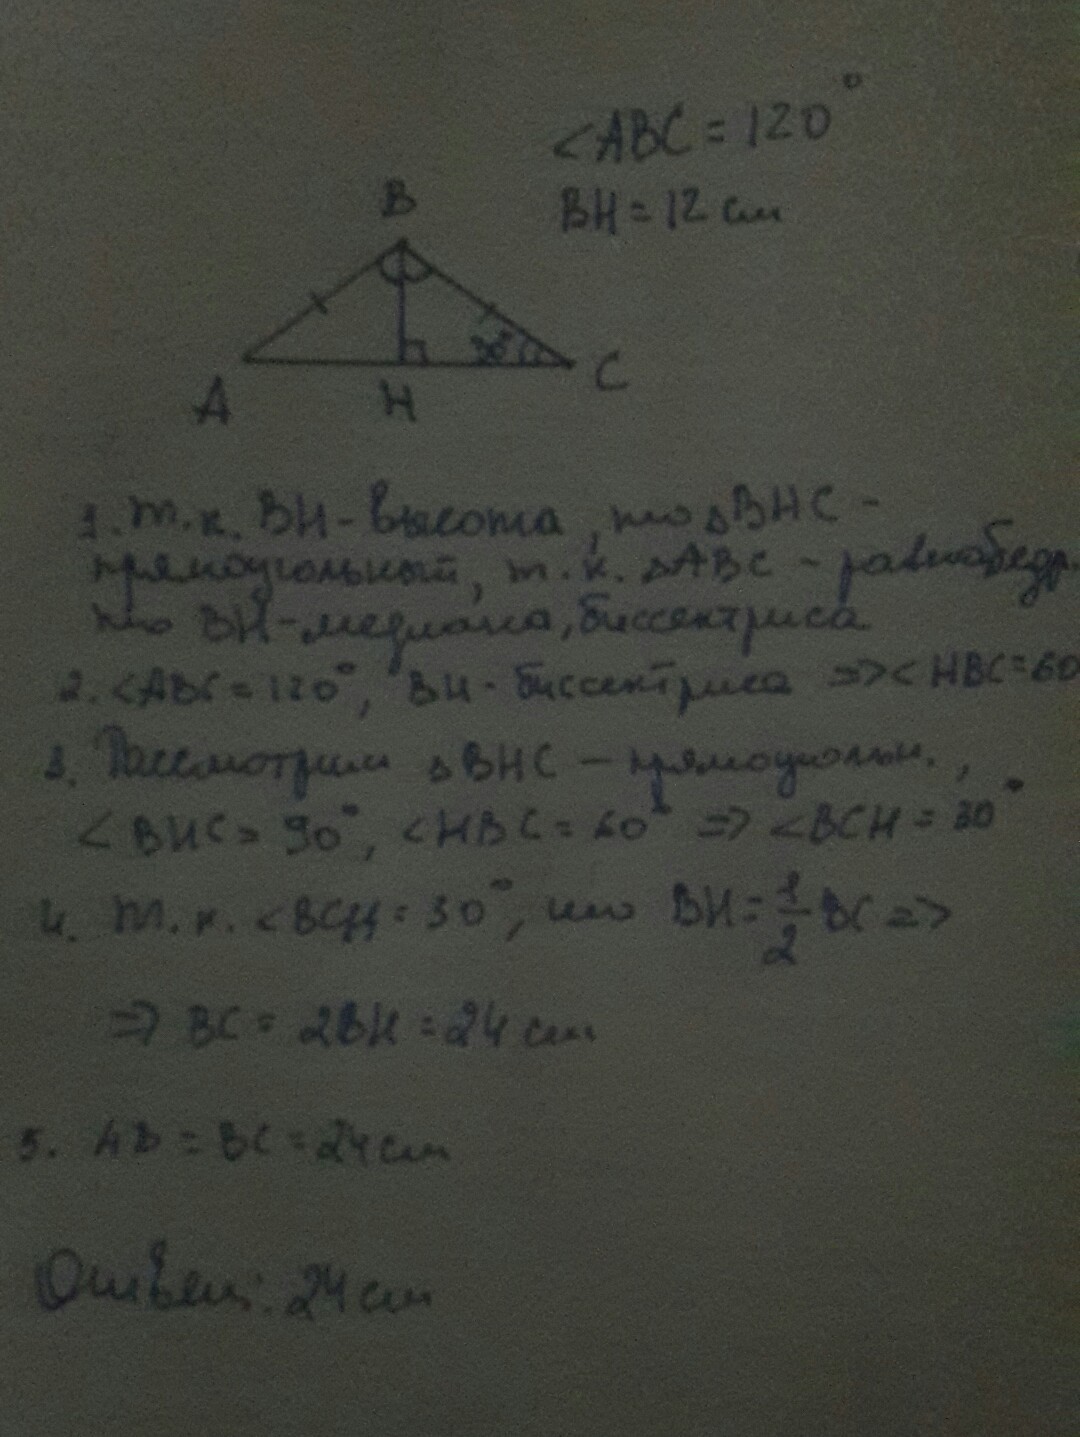 <ABC = 120°
BH = 12 см
B
30°
A
H
C
1. т.к. BH - высота, то △BHC -
прямоугольный, т.к. △ABC - равнобедр.
то BH - медиана, биссектриса
2. <ABC = 120°, BH - биссектриса => <HBC = 60
3. Рассмотрим △BHC - прямоугольн.,
<BHC = 90°, <HBC = 60° => <BCH = 30°
4. т.к. <BCH = 30°, то BH = 1/2 BC =>
=> BC = 2BH = 24 см
5. AB = BC = 24 см
Ответ: 24 см